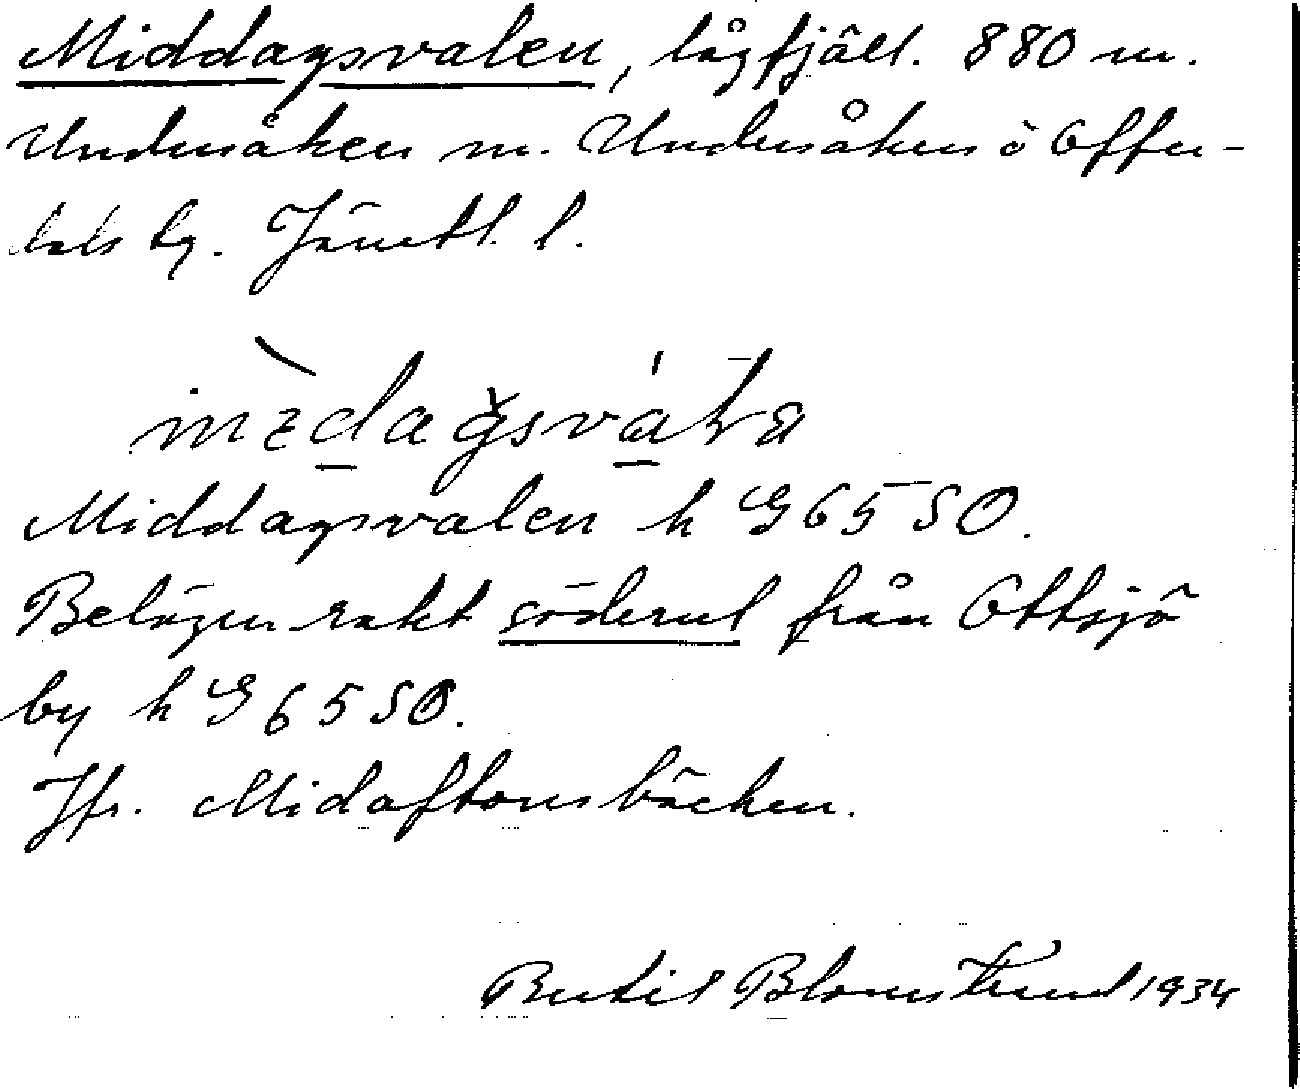 Middagsvalen, lågfjäll. 880 m.
Undersåker sn. Undersåkers o Offer-
dals tg. Jämtl. l.
Middagsvalen h G 65 SO.
Belägen rakt söderut från Ottsjö
by h G 65 SO.
Jfr. Midaftonsbäcken.
Bertil Blomstrand 1934